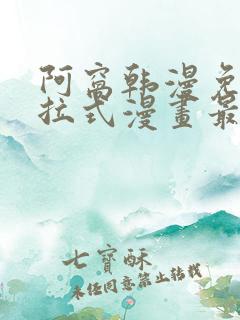 阿窩韩漫免
拉式漫畫最
七寶酥
未经同意禁止转载